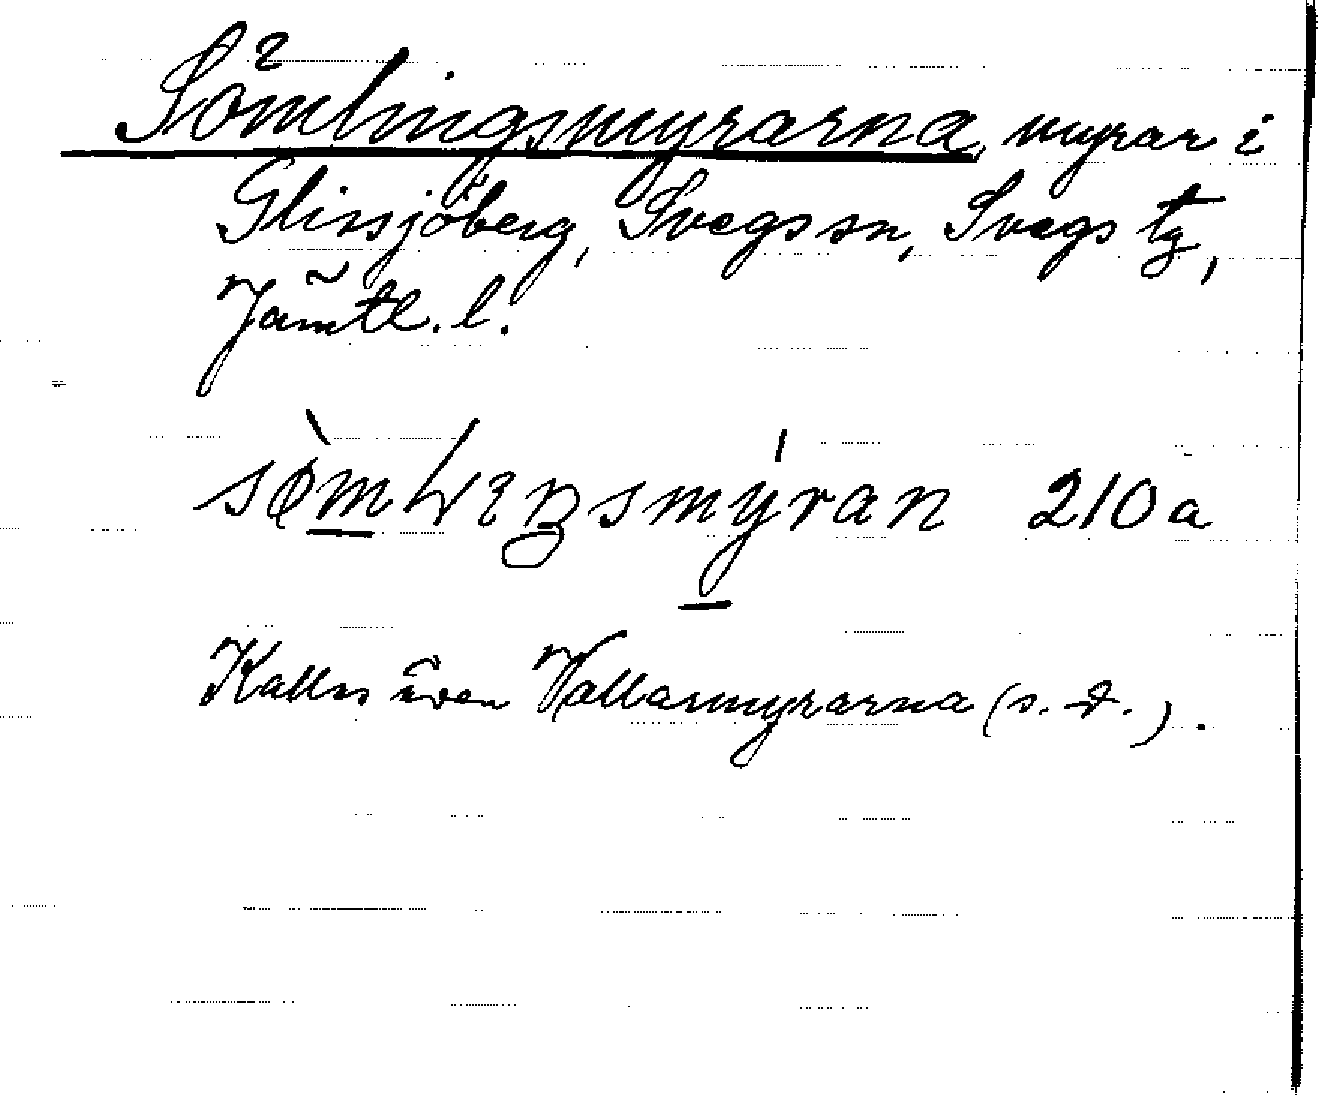 Sömlingsmyrarna, myrar i
Glissjöberg, Svegs sn, Svegs tg,
Jämtl. l.
210 a
Kallas även Vallarmyrarna (s. d.).